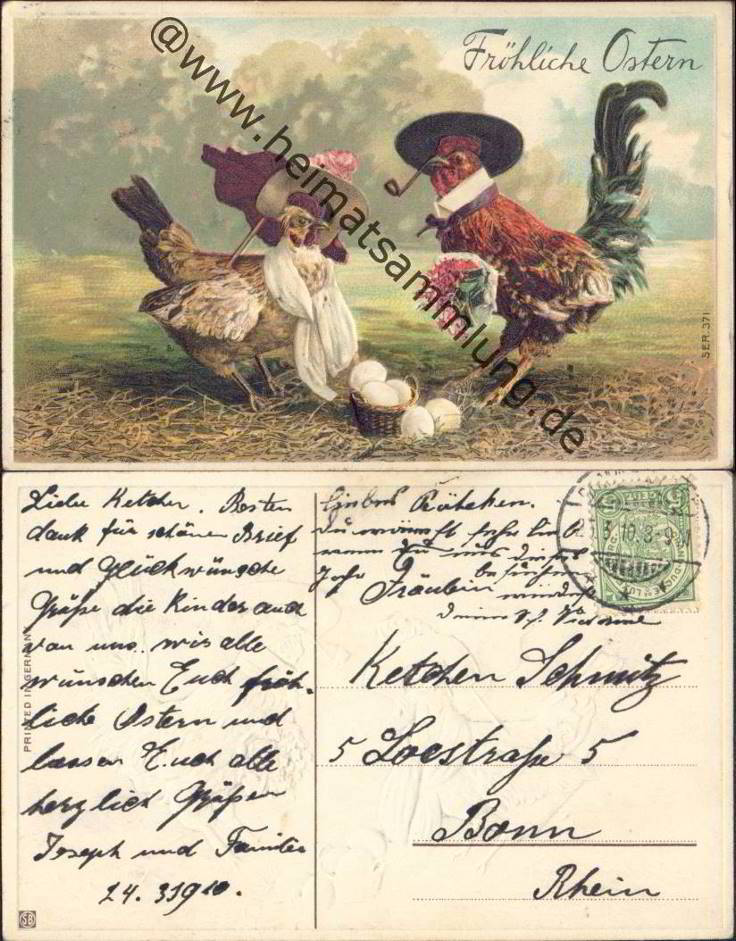 Fröhliche Ostern
@www.heimatsammlung.de
SER. 371
Liebe Ketchen. Besten
dank für schönen Brief
und Glückwünsche
Grüße die Kinder auch
von uns. wir alle
wünschen Euch fröh-
liche Ostern und
lassen Euch alle
herzlich Grüßen
Joseph und Familie
24.31910.
PRINTED IN GERMANY
SB
Du
wenn Du uns
Fräulein
Ketchen Schmitz
5 Loestraße 5
Bonn
Rhein